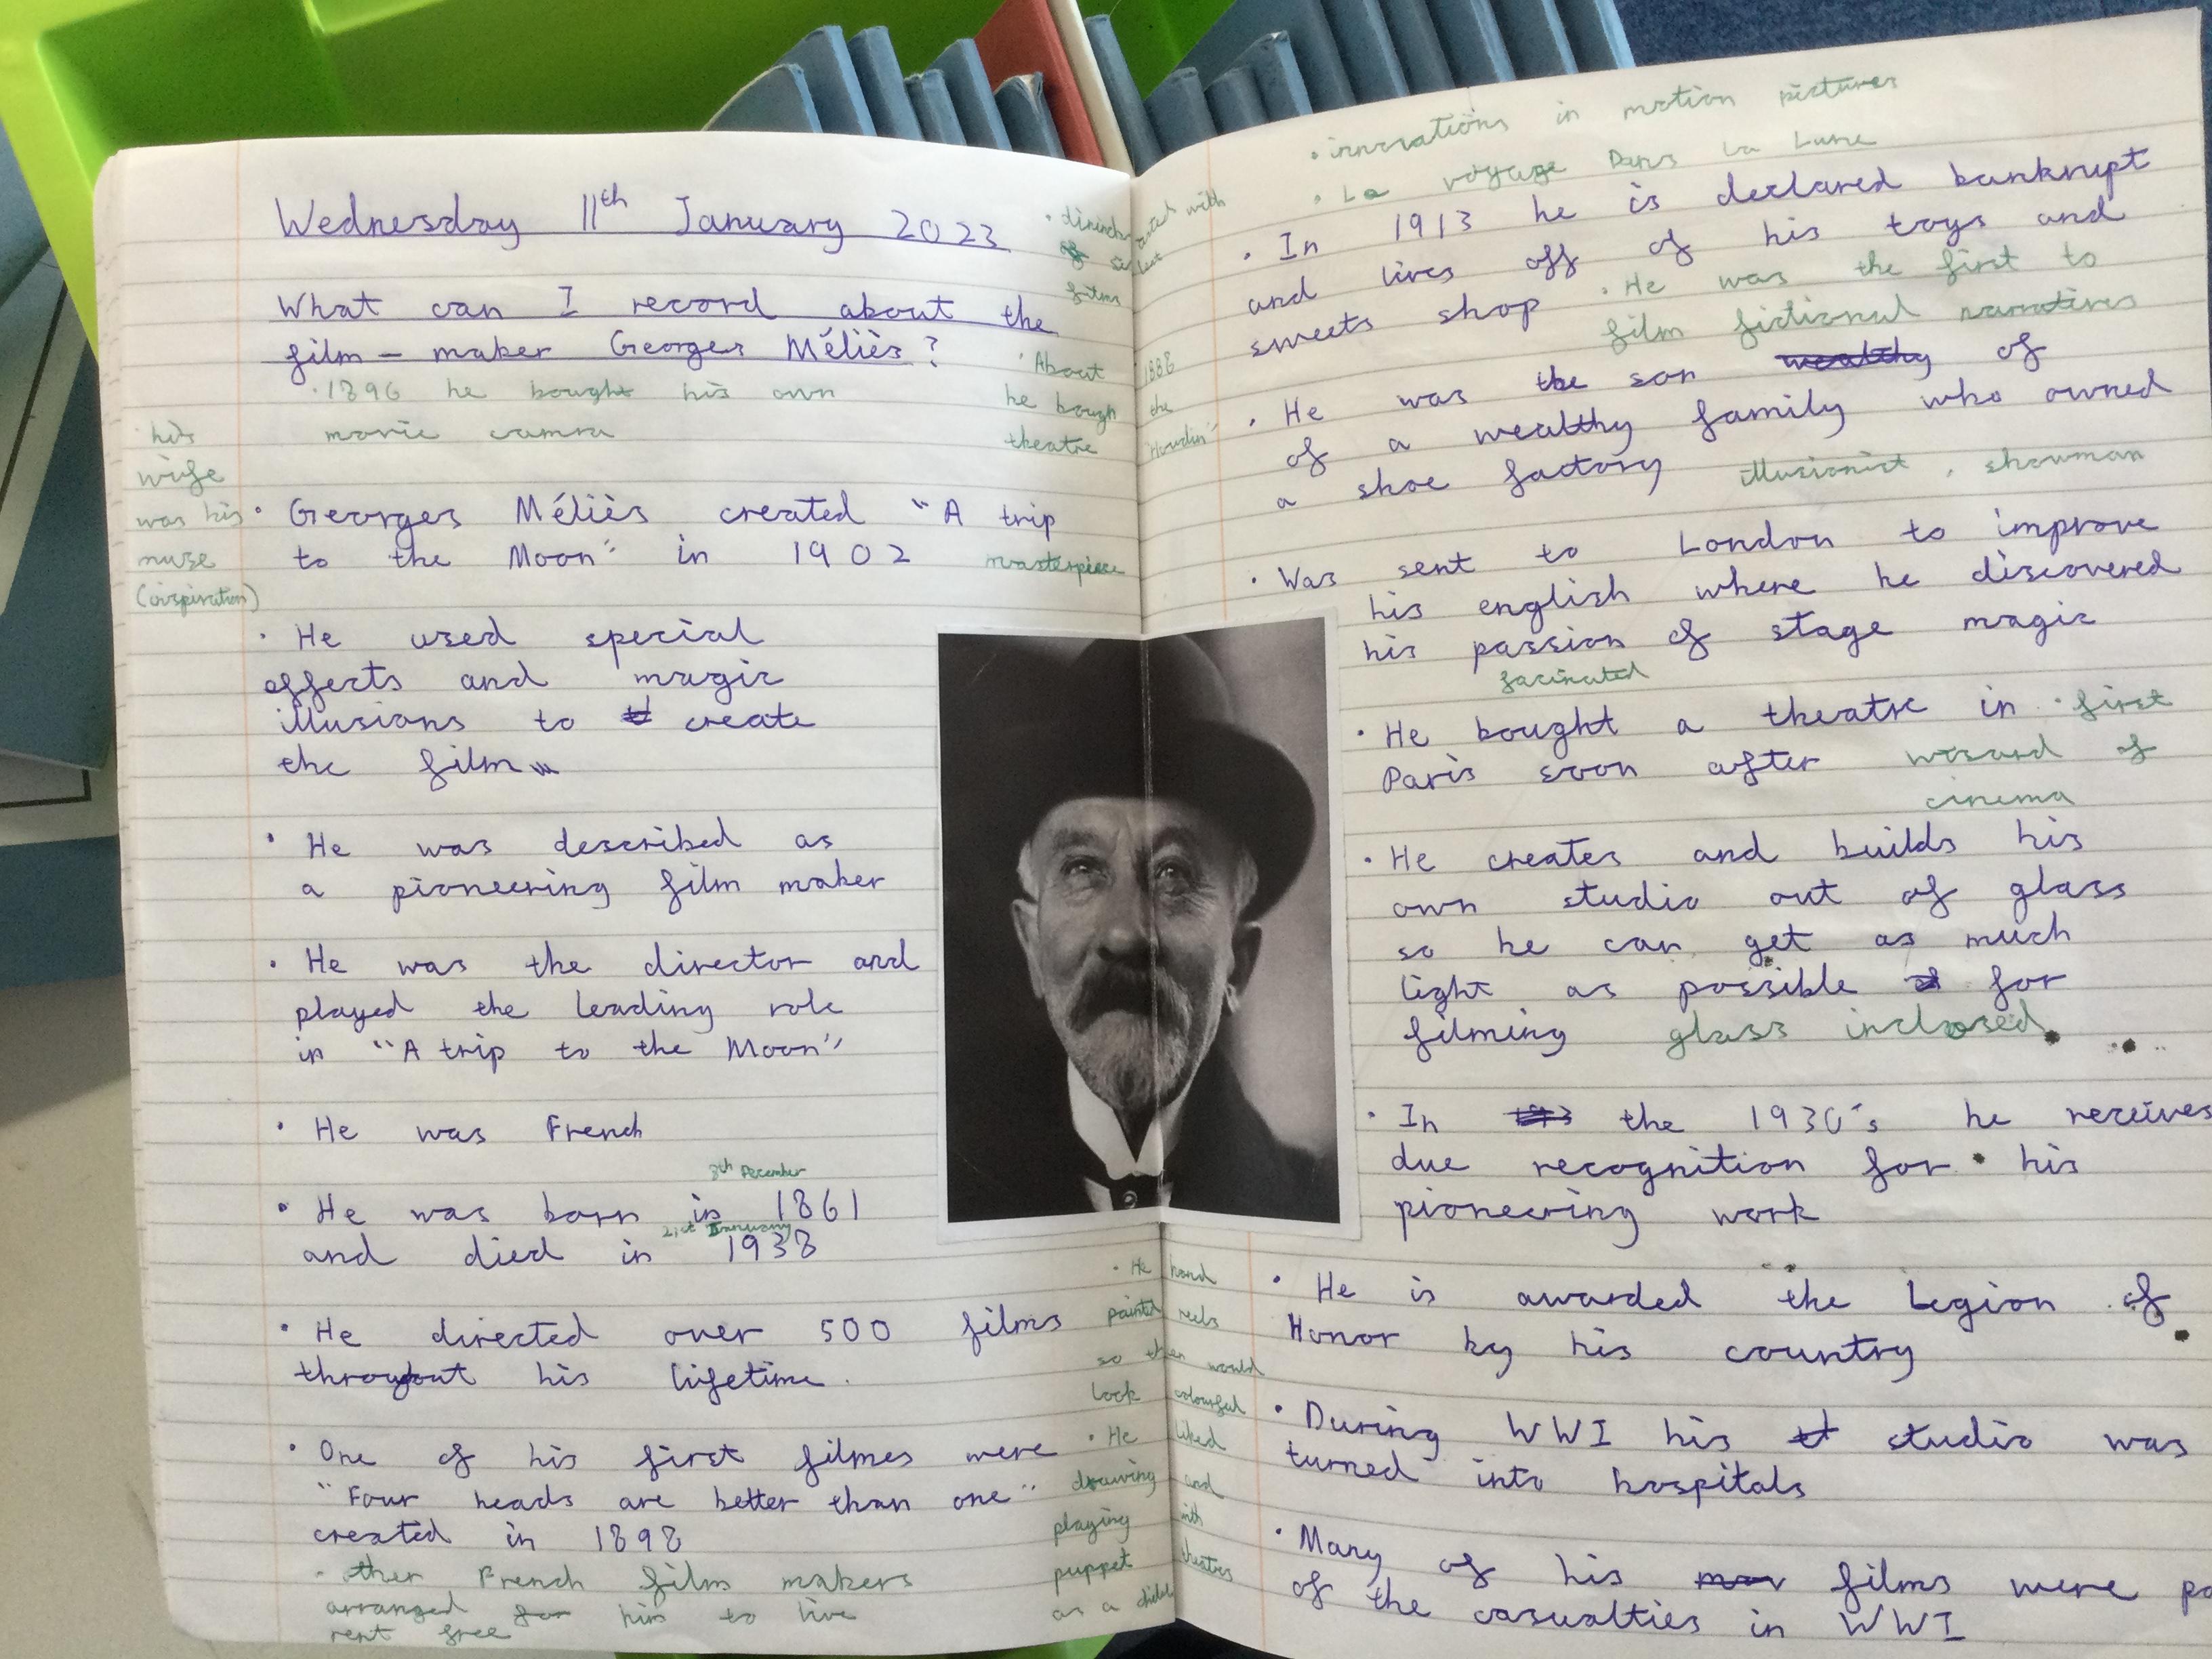 Wednesday 11th January 2023
What can I record about the
film - maker Georges Méliès?
· 1896 he bought his own
movie camra
his
wife
was his
muse
(inspiration)
· Georges Méliès created "A trip
to the Moon" in 1902 masterpiece
· He used special
effects and magic
illusions to create
the film
· He was described as
a pioneering film maker
· He was the director and
played the leading role
in "A trip to the Moon"
· He was French
8th December
· He was born in 1861
21st January
and died in 1938
· He directed over 500 films
throughout his lifetime.
· One of his first filmes were
"Four heads are better than one"
created in 1898
· other French film makers
arranged for him to live
rent free
with
of silent
films
· About 1888
he bough the
theatre "Houdin"
· He hand
painted reels
so then would
look colourful
· He liked
drawing and
playing with
puppet theatres
as a child
· innovations in motion pictures
· Le voyage Dans La Lune
· In 1913 he is declared bankrupt
and lives off of his toys and
sweets shop · He was the first to
film fictional narratives
· He was the son wealthy of
of a wealthy family who owned
a shoe factory illusionist, showman
· Was sent to London to improve
his english where he discovered
his passion of stage magic
facinated
· He bought a theatre in · first
Paris soon after wisard of
cinema
· He creates and builds his
own studio out of glass
so he can get as much
light as possible for
filming glass inclosed
· In the 1930's he receives
due recognition for his
pioneering work
· He is awarded the Legion of
Honor by his country
· During WWI his studio was
turned into hospitals
· Many of his films were
of the casualties in WWI